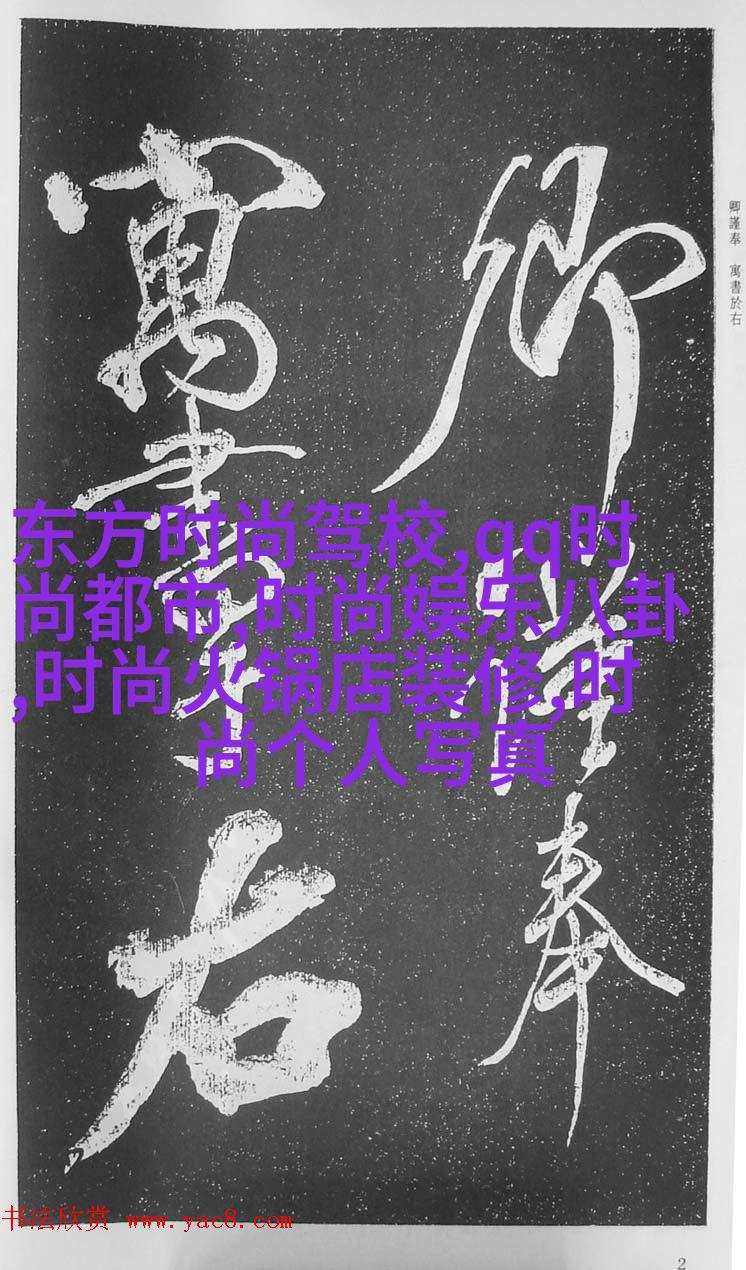 卿謹奉
寓書於右
卿謹奉 寓書於右
东方时尚驾校,qq时
尚都市,时尚娱乐八卦
,时尚火锅店装修,时
尚个人写真
书法欣赏 www.yac8.com
2